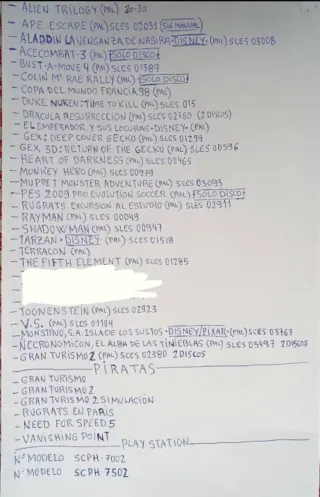 - ALIEN TRILOGY (PAL) 20-30
- APE ESCAPE (PAL) SCES 02031 (SIN MANUAL)
- ALADDIN LA VENGANZA DE NASIRA • DISNEY • (PAL) SCES 03008
- ACE COMBAT-3 (PAL) SOLO DISCO
- BUST-A-MOVE 4 (PAL) SLES 01389
- COLIN Mc RAE RALLY (PAL) SOLO DISCO
- COPA DEL MUNDO FRANCIA 98 (PAL)
- DUKE NUKEN: TIME TO KILL (PAL) SLES 015
- DRACULA RESURRECCION (PAL) SLES 02760 (2 DISCOS)
- EL EMPERADOR Y SUS LOCURAS • DISNEY • (PAL)
- GEX: DEEP COVER GECKO (PAL) SLES 01299
- GEX 3D: RETURN OF THE GECKO (PAL) SLES 00596
- HEART OF DARKNESS (PAL) SLES 00465
- MONKEY HERO (PAL) SLES 00979
- MUPPET MONSTER ADVENTURE (PAL) SCES 03093
- PES 2009 PRO EVOLUTION SOCCER (PAL) SOLO DISCO
- RUGRATS EXCURSION AL ESTUDIO (PAL) SLES 02911
- RAYMAN (PAL) SLES 00049
- SHADOWMAN (PAL) SLES 00947
- TARZAN • DISNEY • (PAL) SCES 01518
- TERRACON (PAL)
- THE FIFTH ELEMENT (PAL) SCES 01285
- TOONENSTEIN (PAL) SLES 02923
- V.S. (PAL) SLES 01104
- MONSTRUO, S.A. ISLA DE LOS SUSTOS • DISNEY/PIXAR • (PAL) SCES 03767
- NECRONOMICON, EL ALBA DE LAS TINIEBLAS (PAL) SLES 03497 2 DISCOS
- GRAN TURISMO 2 (PAL) SCES 02380 2 DISCOS
PIRATAS
- GRAN TURISMO
- GRAN TURISMO 2
- GRAN TURISMO 2 SIMULACIÓN
- RUGRATS EN PARIS
- NEED FOR SPEED 5
- VANISHING POINT
PLAY STATION
Nº MODELO SCPH-7002
Nº MODELO SCPH 7502